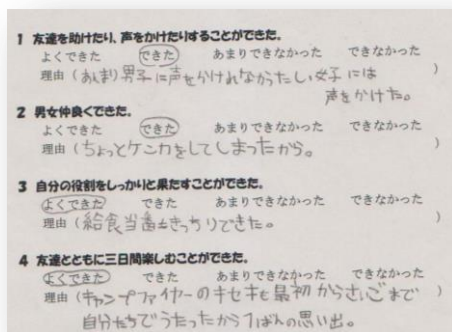 1 友達を助けたり、声をかけたりすることができた。
よくできた できた あまりできなかった できなかった
理由(あんまり男子に声をかけれなかったしい女子には
声をかけた。)
2 男女仲良くできた。
よくできた できた あまりできなかった できなかった
理由(ちょっとケンカをしてしまったから。)
3 自分の役割をしっかりと果たすことができた。
よくできた できた あまりできなかった できなかった
理由(給食当番もきっちりできた。)
4 友達とともに三日間楽しむことができた。
よくできた できた あまりできなかった できなかった
理由(キャンプファイヤーのキセキも最初からさいごまで)
自分たちでうたったから1ばんの思い出。